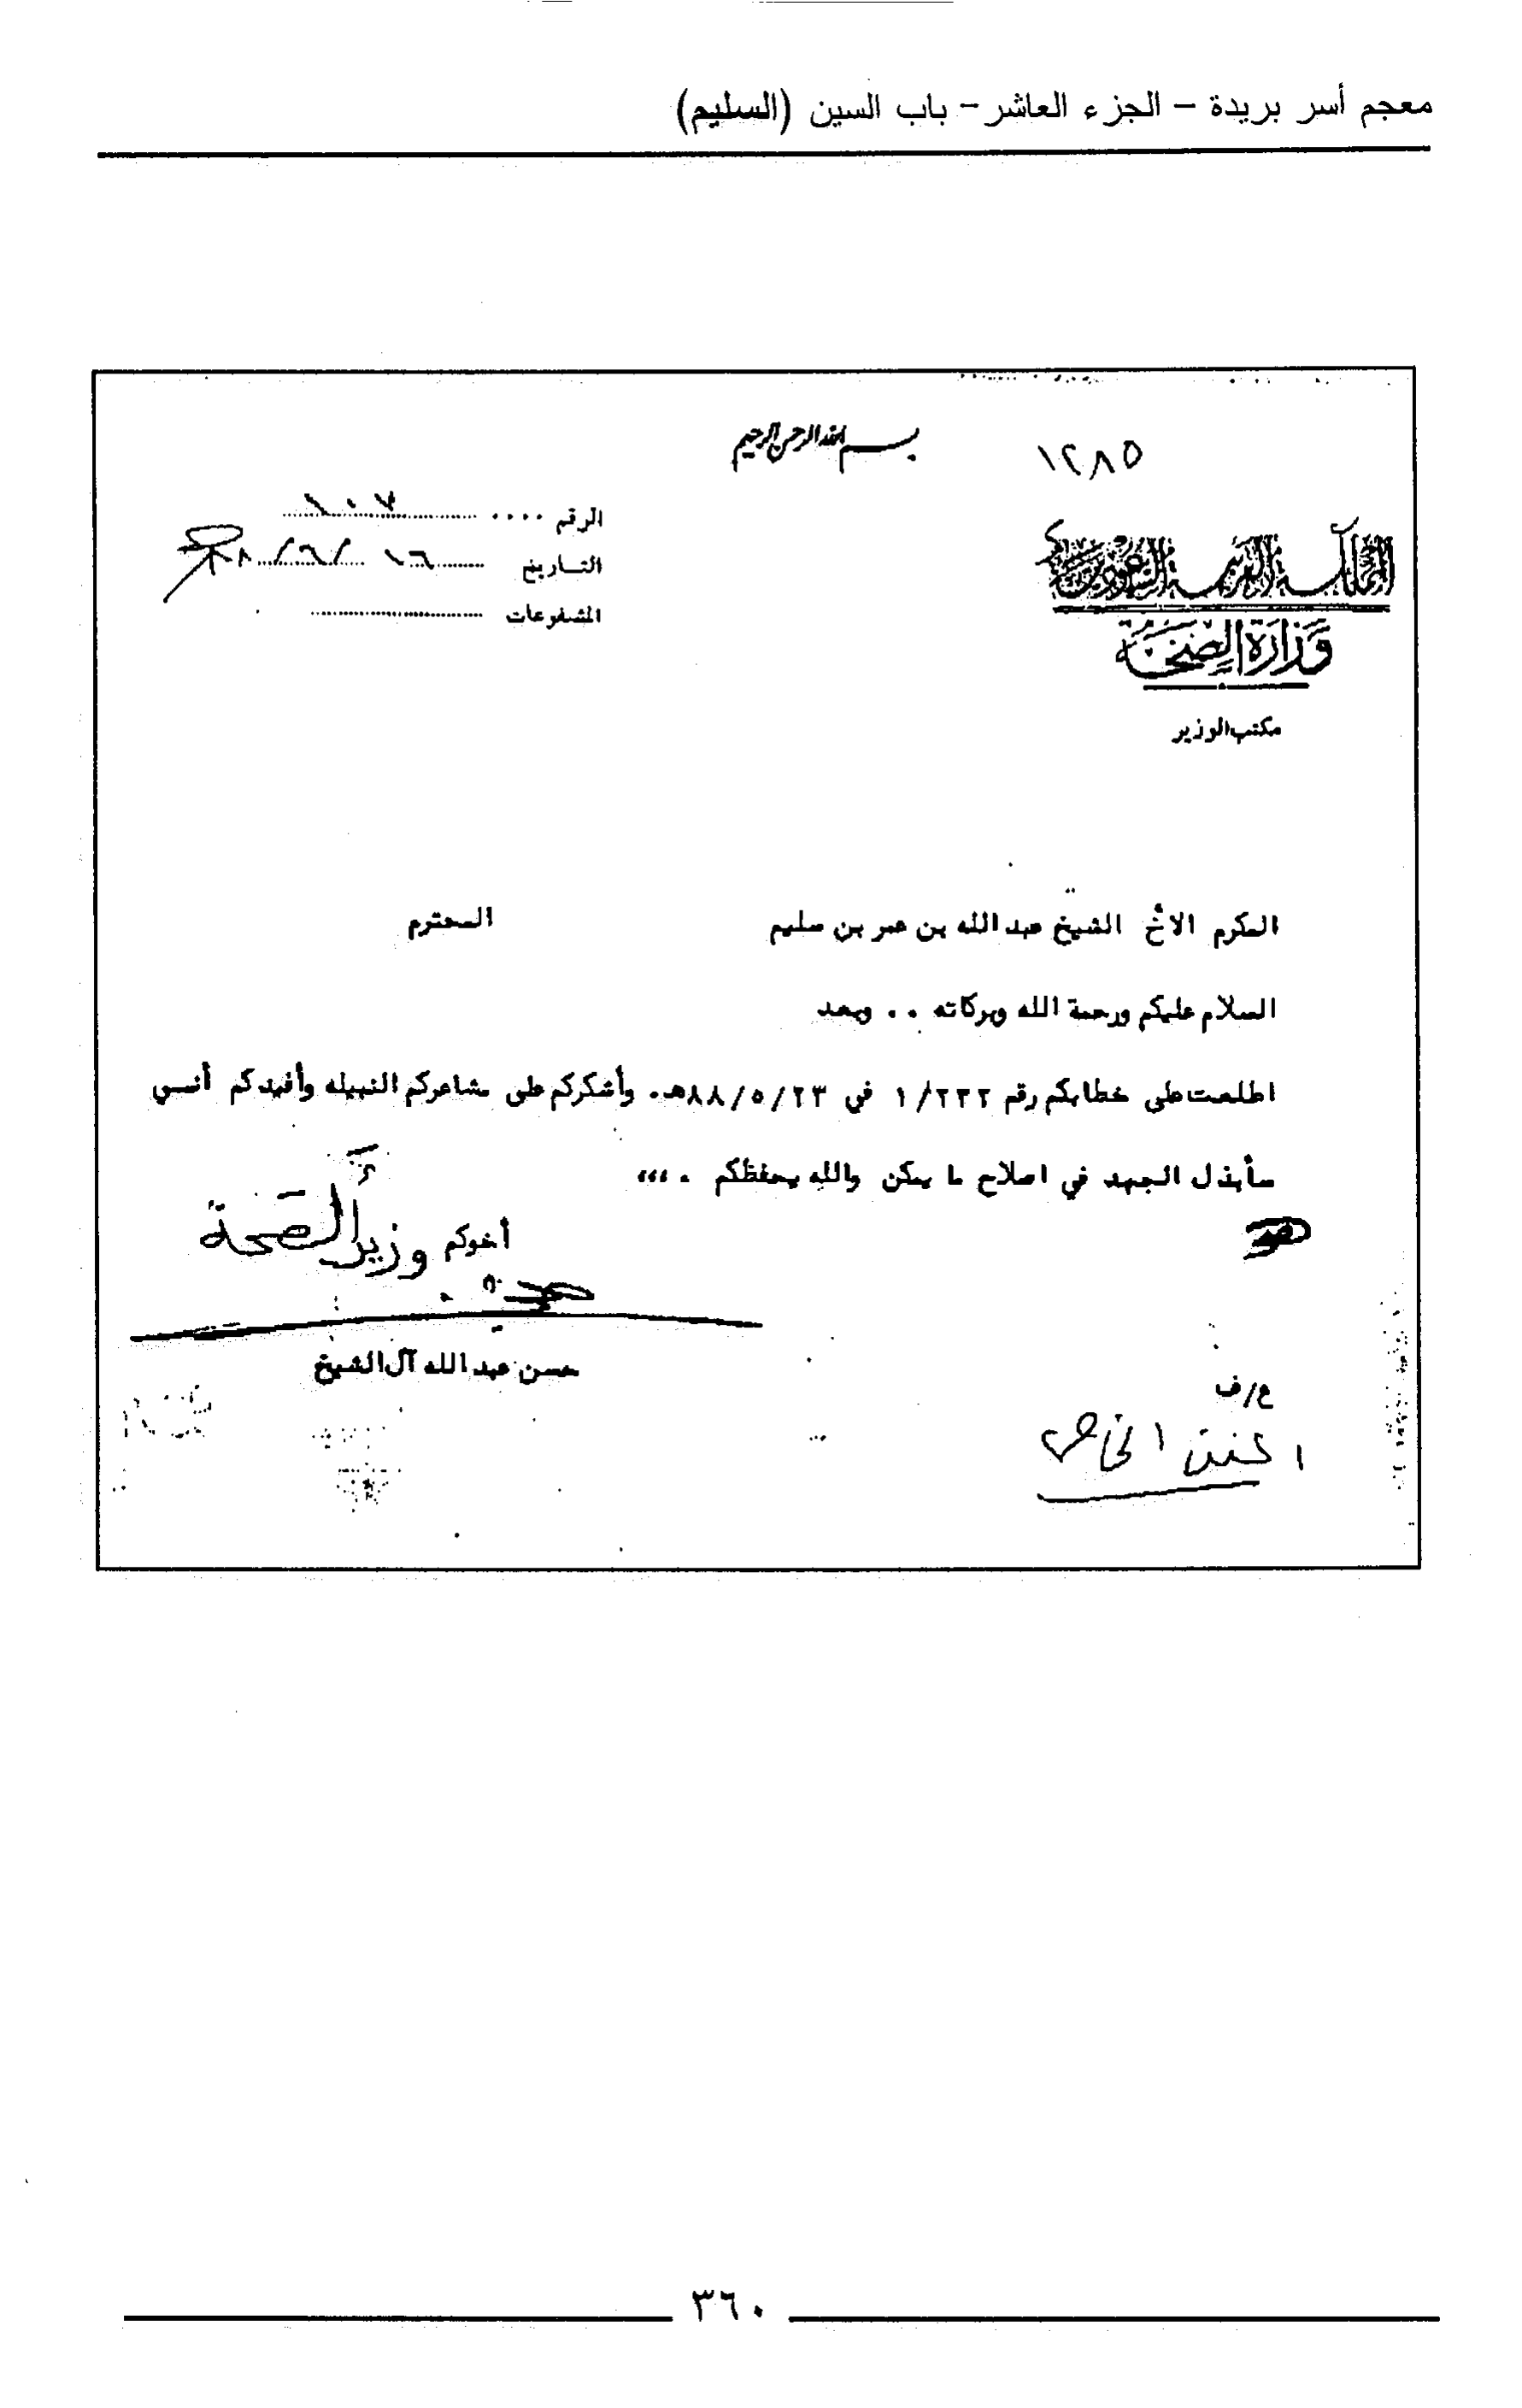 معجم أسر بريدة – الجزء العاشر – باب السين (السليم)
بسم الله الرحمن الرحيم
١٢٨٥
المملكة العربية السعودية
وزارة الصحة
مكتب الوزير
الرقم ١٠٧
التاريخ ١٦/٦/
المشفوعات
المكرم الأخ الشيخ عبد الله بن عمر بن سليم المحترم
السلام عليكم ورحمة الله وبركاته . . وبعد
اطلعت على خطابكم رقم ١/٢٣٢ في ٨٨/٥/٢٣هـ. وأشكركم على مشاعركم النبيله وأفيدكم أنــي
سأبذل الجهد في اصلاح ما يمكن والله يحفظكم . ،،،
أخوكم وزير الصحة
حسن عبد الله آل الشيخ
ع/ف
الخاص
٣٦٠